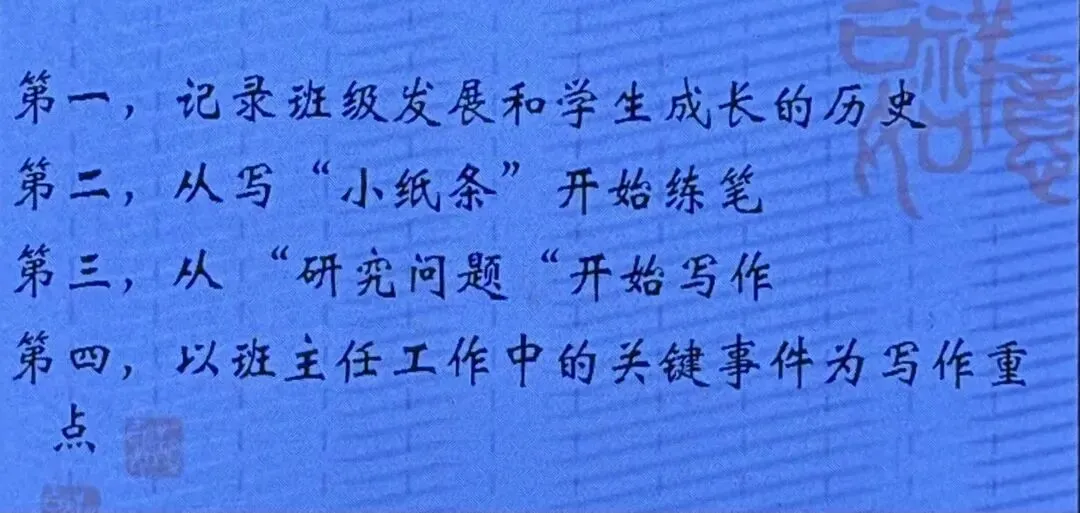 第一，记录班级发展和学生成长的历史
第二，从写“小纸条”开始练笔
第三，从 “研究问题 “开始写作
第四，以班主任工作中的关键事件为写作重
点
吉祥如意